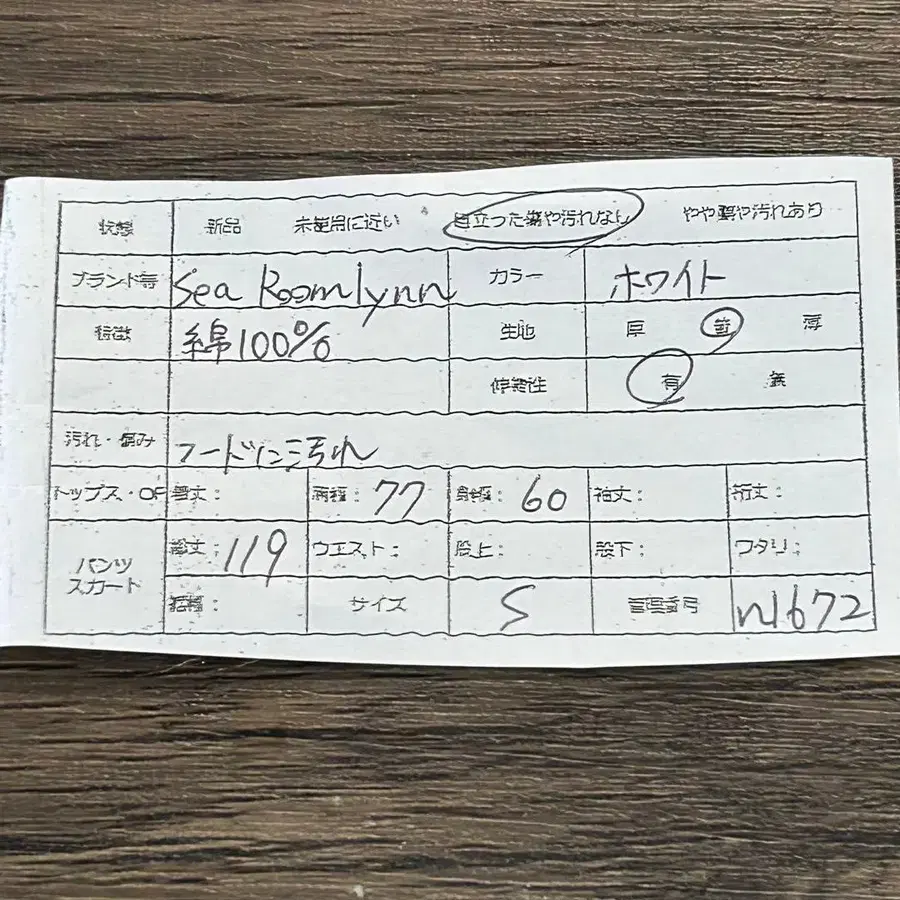 状態 新品 未使用に近い 目立った傷や汚れなし やや傷や汚れあり
ブランド等 Sea Roomlynn カラー ホワイト
特徴 綿100% 生地 厚 普 薄
伸縮性 有 無
汚れ・傷み フードに汚れ
トップス・OP 着丈： 裄幅： 77 身幅： 60 袖丈： 裄丈：
パンツ スカート 総丈： 119 ウエスト： 股上： 股下： ワタリ：
裾幅： サイズ S 管理番号 n1672